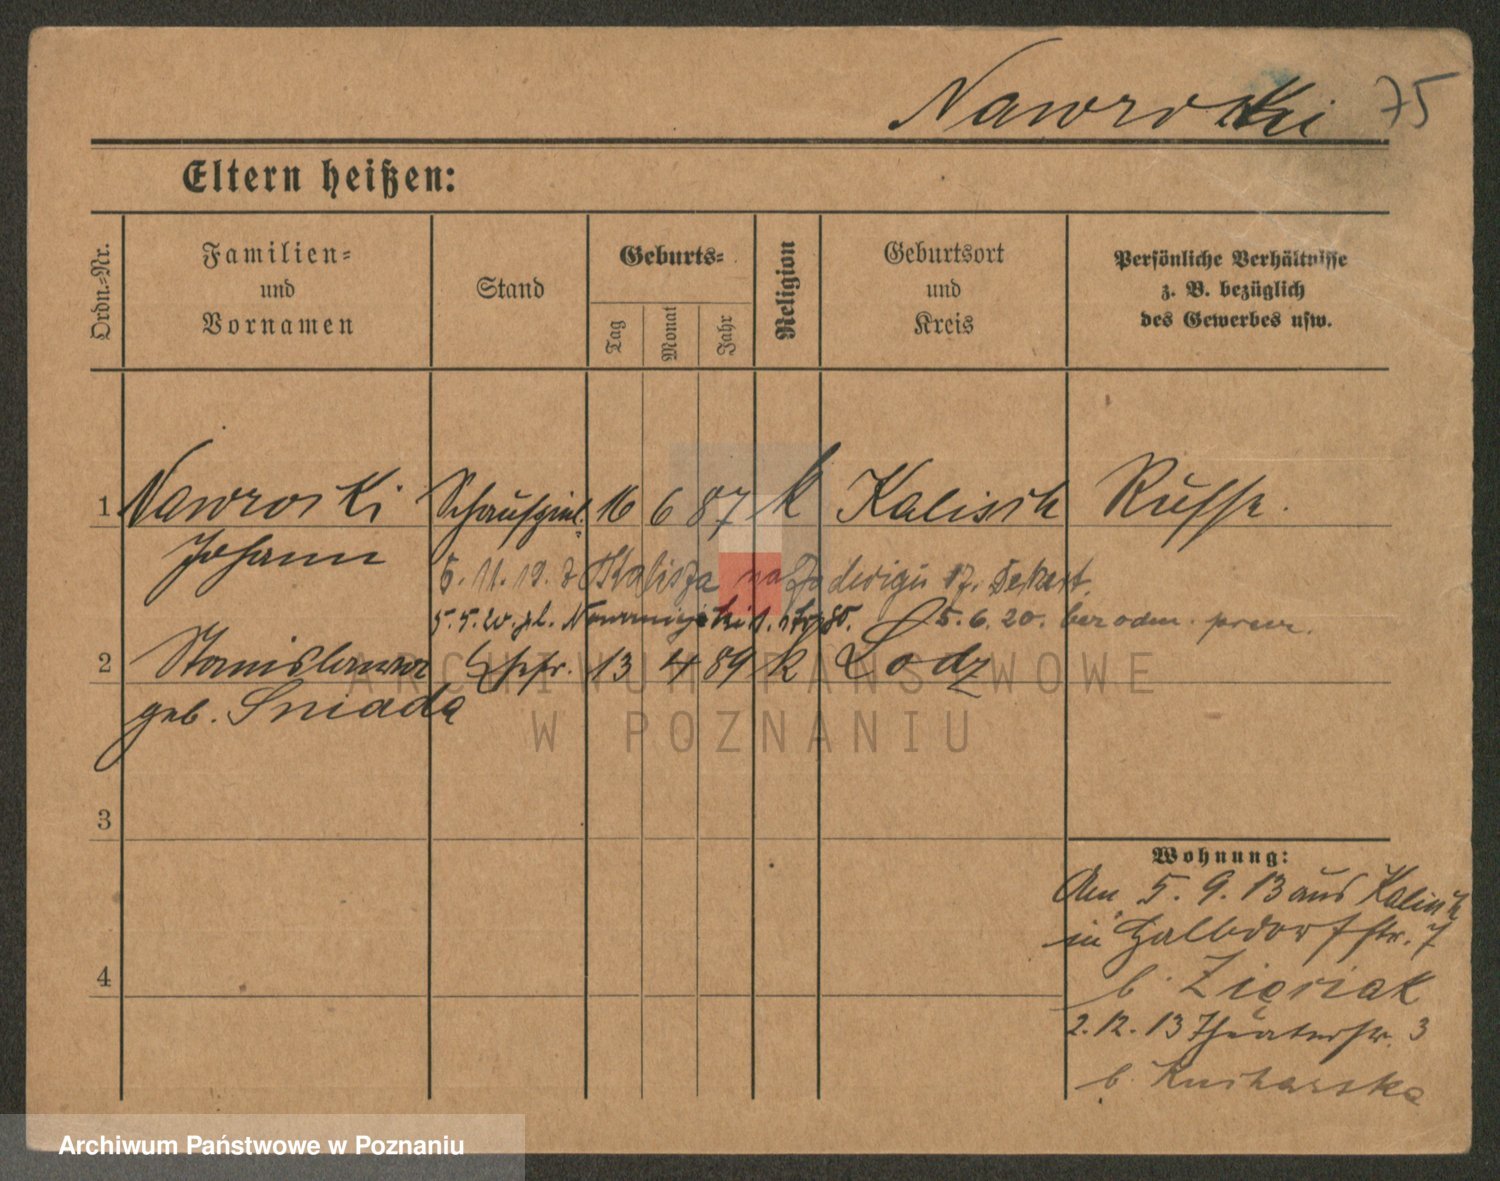 Nawroski 75
Eltern heißen:
Ordn.-Nr.
Familien-
und
Vornamen
Stand
Geburts-
Tag
Monat
Jahr
Religion
Geburtsort
und
Kreis
Persönliche Verhältnisse
z. B. bezüglich
des Gewerbes usw.
1 Nawroski Schauspiel. 16 6 87 k Kalisch Russe.
Johann
5. 11. 19. z Kalisza na Jadwigi 17.
5. 5. 20. 5. 6. 20. bez odm.
2 Stanislawa Ehefr. 13 4 89 k Lodz
geb. Sniada
3
4
Wohnung:
Am 5. 9. 13 aus Kalisch
in Halbdorfstr. 7
b. Zięziak
2. 12. 13 Theaterstr. 3
b. Kucharska
ARCHIWUM PAŃSTWOWE
W POZNANIU
Archiwum Państwowe w Poznaniu